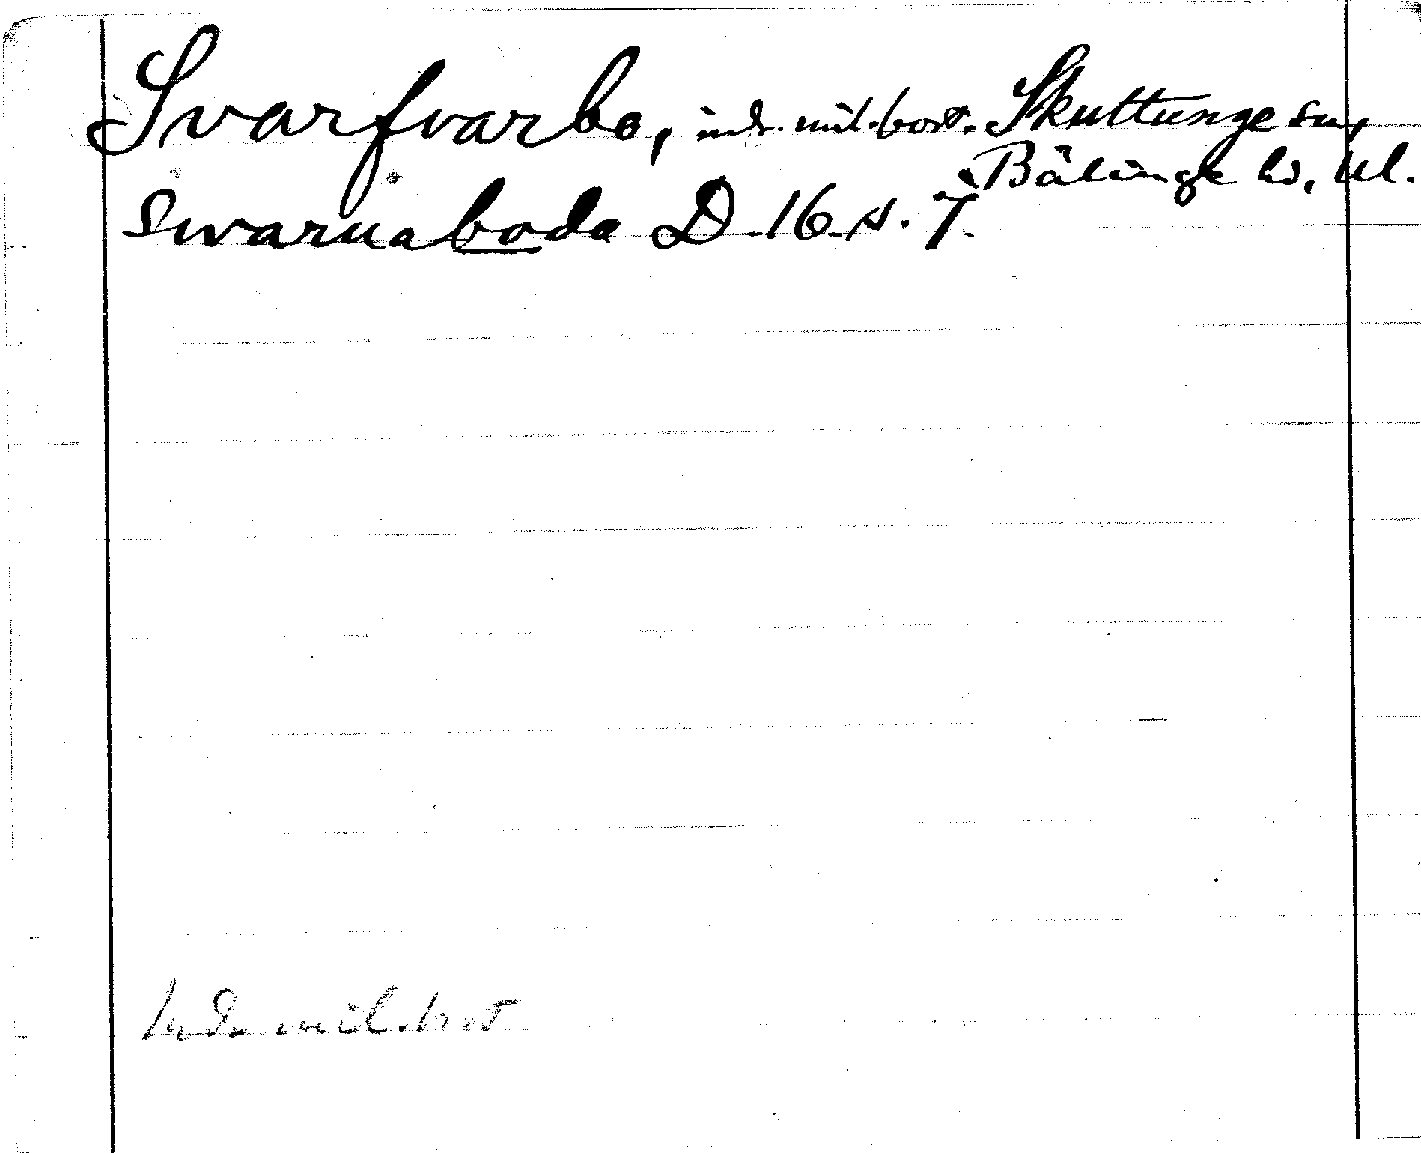 Svarfvarbo, indr. mil. bost. Skuttunge sn,
Bälinge hd, Ul.
Swaruaboda D 16 s. 7
Indr mil. bost